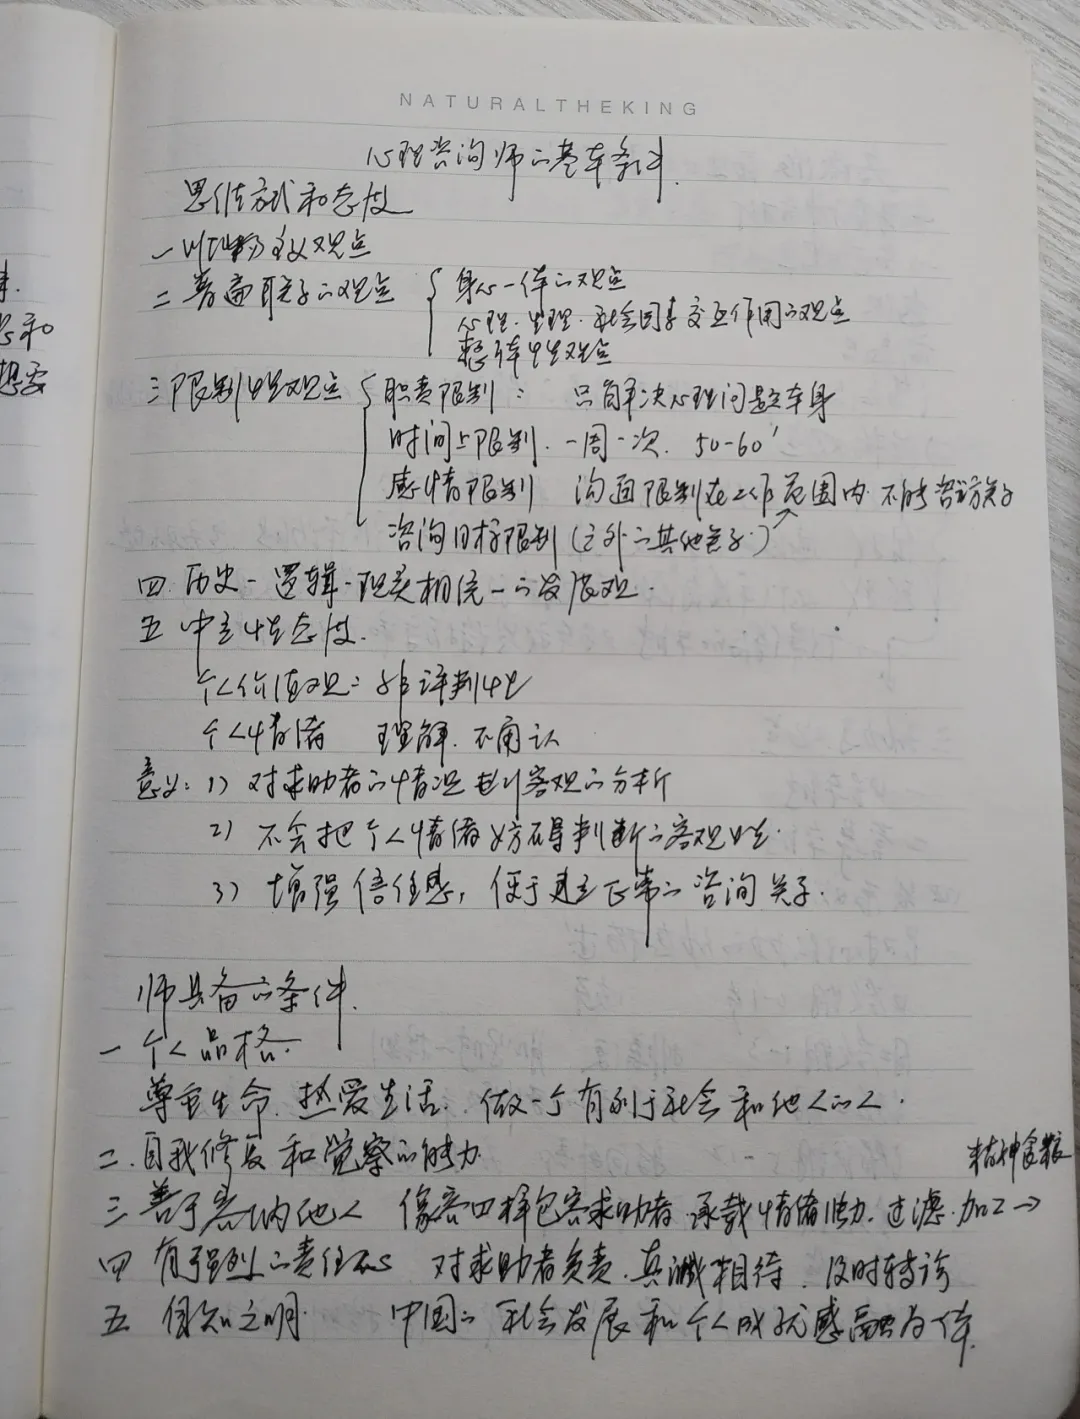 NATURALTHEKING
心理咨询师的基本条件.
思维方式和态度
一 唯物主义观点
二 普遍联系的观点 { 身心一体的观点
心理.生理.社会因素交互作用的观点
整体性观点
三 限制性观点 { 职责限制: 只解决心理问题本身
时间上限制. 一周一次. 50-60'
感情限制 沟通限制在工作范围内 不能咨访关系
咨询目标限制 (之外的其他关系)
四 历史-逻辑-现实相统一的发展观.
五 中立性态度.
个人价值观: 非评判性
个人情绪 理解.不
意义: 1) 对求助者的情况进行客观的分析
2) 不会把个人情绪妨碍判断的客观性.
3) 增强信任感, 便于建立正常的咨询关系.
师具备的条件.
一 个人品格.
尊重生命.热爱生活. 做一个有利于社会和他人的人.
二.自我修复和觉察的能力
精神食粮
三 善于容纳他人 像容四样包容求助者.承载情绪 过滤.加工→
四 有强烈的责任心 对求助者负责.真诚相待.及时转诊
五 自知之明. 中国的社会发展和个人成就感融为一体.